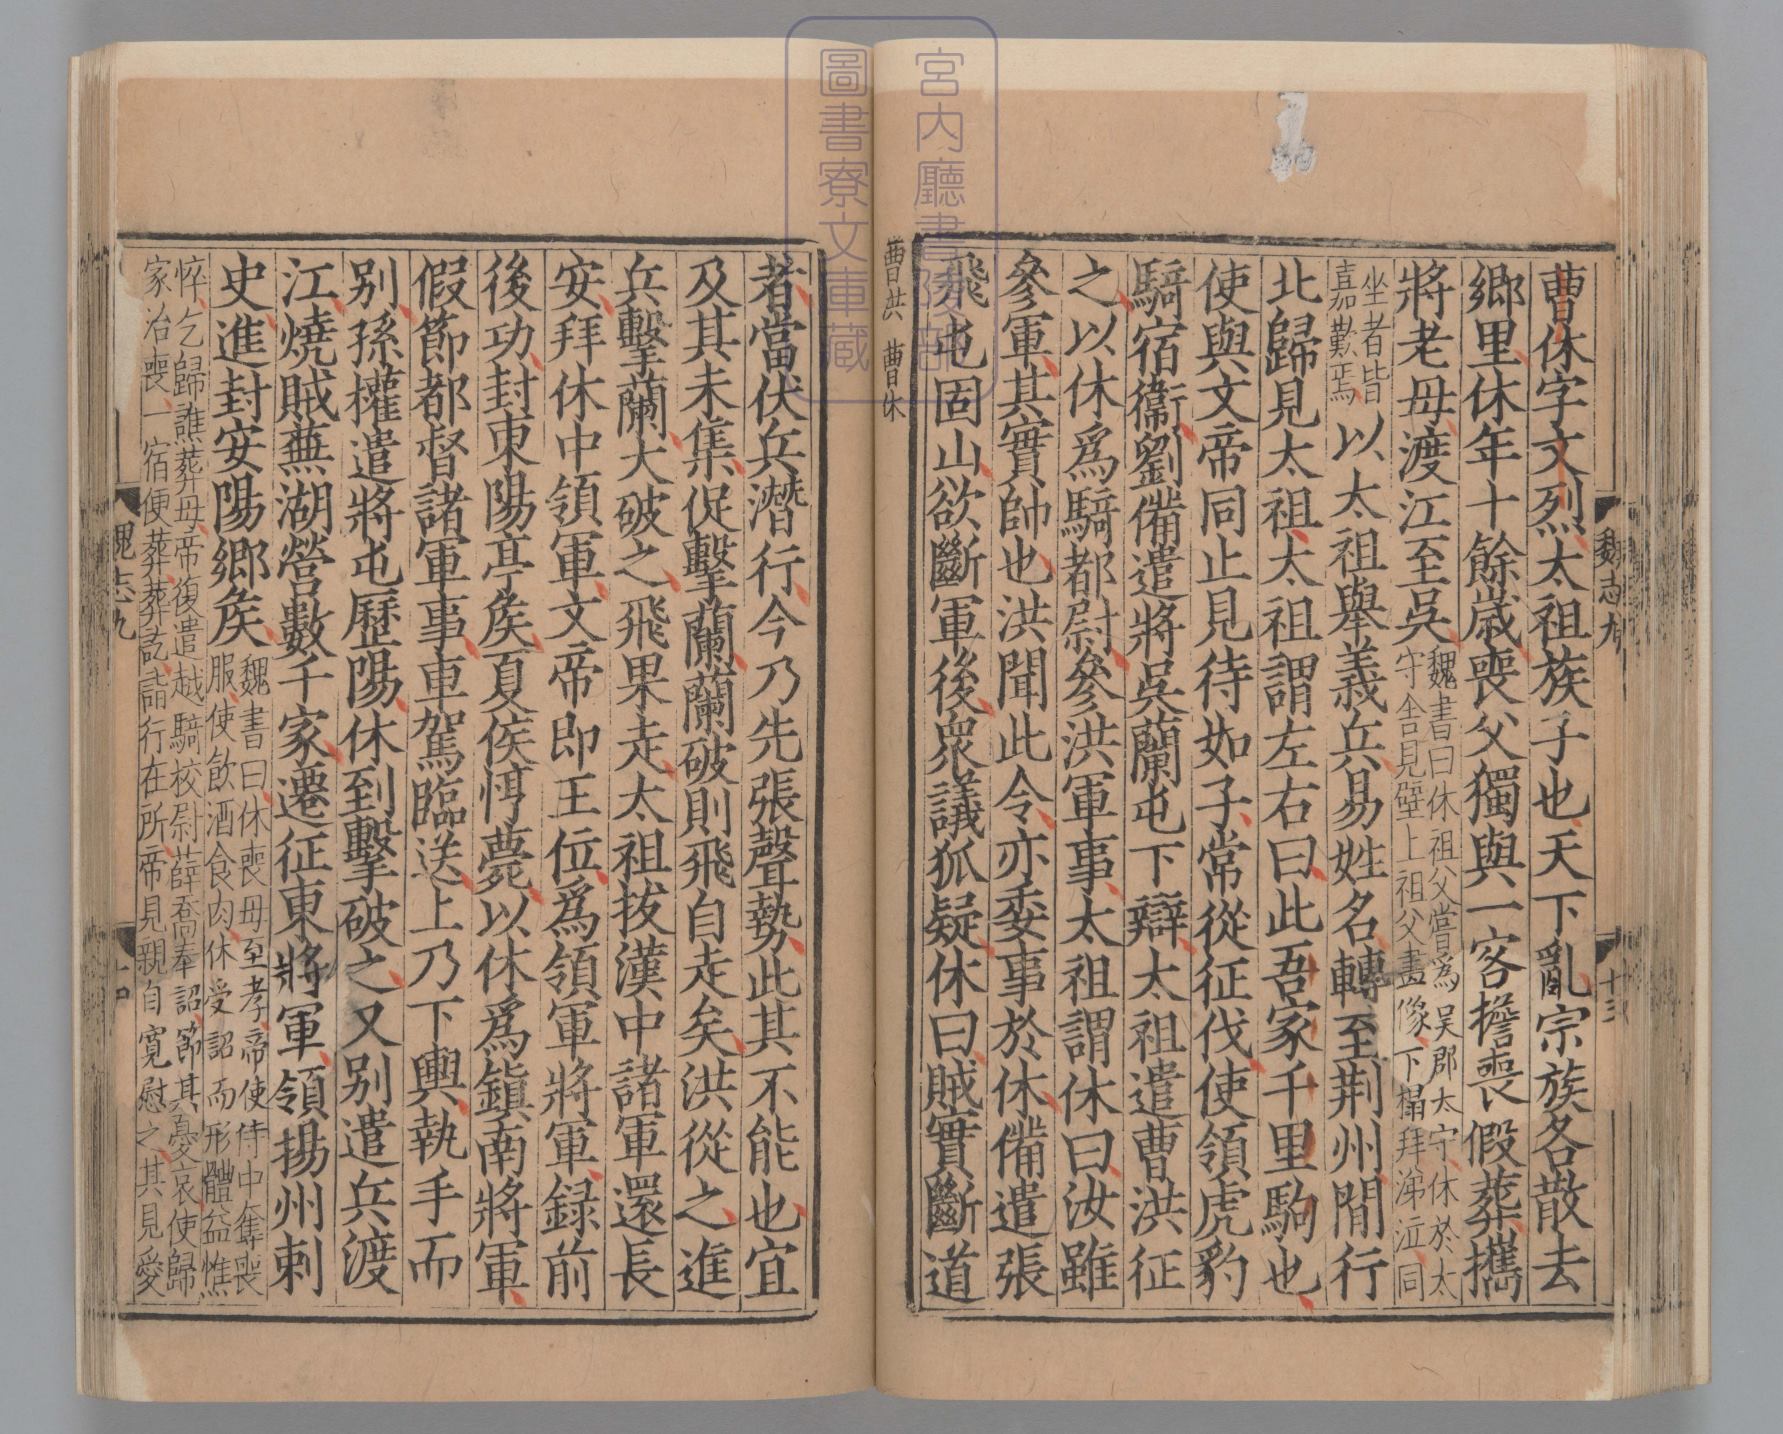 曹休字文烈太祖族子也天下亂宗族各散去
鄉里休年十餘歲喪父獨與一客擔喪假葬攜
將老母渡江至吳
魏書曰休祖父嘗爲吳郡太守休於太
守舍見壁上祖父畫像下榻拜涕泣同
坐者皆
嘉歎焉
以太祖舉義兵易姓名轉至荆州閒行
北歸見太祖太祖謂左右曰此吾家千里駒也
使與文帝同止見待如子常從征伐使領虎豹
騎宿衞劉備遣將吳蘭屯下辯太祖遣曹洪征
之以休爲騎都尉參洪軍事太祖謂休曰汝雖
參軍其實帥也洪聞此令亦委事於休備遣張
飛屯固山欲斷軍後衆議狐疑休曰賊實斷道
曹洪 曹休
魏志九
十三
者當伏兵潛行今乃先張聲勢此其不能也宜
及其未集促擊蘭蘭破則飛自走矣洪從之進
兵擊蘭大破之飛果走太祖拔漢中諸軍還長
安拜休中領軍文帝即王位爲領軍將軍録前
後功封東陽亭矦夏侯惇薨以休爲鎮南將軍
假節都督諸軍事車駕臨送上乃下輿執手而
别孫權遣將屯歷陽休到擊破之又别遣兵渡
江燒賊蕪湖營數千家遷征東將軍領揚州刺
史進封安陽鄉矦
魏書曰休喪母至孝帝使侍中奪喪
服使飲酒食肉休受詔而形體益憔
悴乞歸譙葬母帝復遣越騎校尉薛喬奉詔節其憂哀使歸
家治喪一宿便葬葬訖詣行在所帝見親自寛慰之其見愛
魏志九
十四
宮内廳書陵部
圖書寮文庫藏